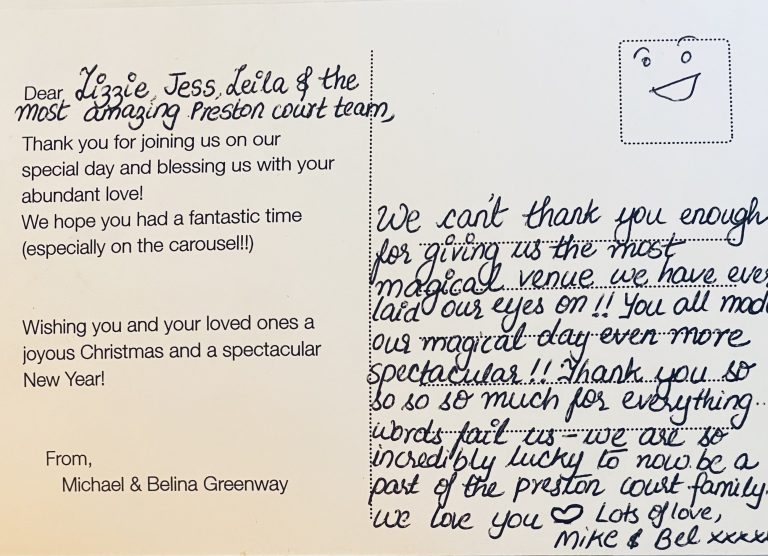 Dear Lizzie, Jess, Leila & the
most amazing Preston court team,
Thank you for joining us on our
special day and blessing us with your
abundant love!
We hope you had a fantastic time
(especially on the carousel!!)
Wishing you and your loved ones a
joyous Christmas and a spectacular
New Year!
From,
Michael & Belina Greenway
We can't thank you enough
for giving us the most
magical venue we have ever
laid our eyes on!! You all made
our magical day even more
spectacular!! Thank you so
so so so much for everything..
words fail us - we are so
incredibly lucky to now be a
part of the preston court family.
We love you ♡ Lots of love,
Mike & Bel xxxxx